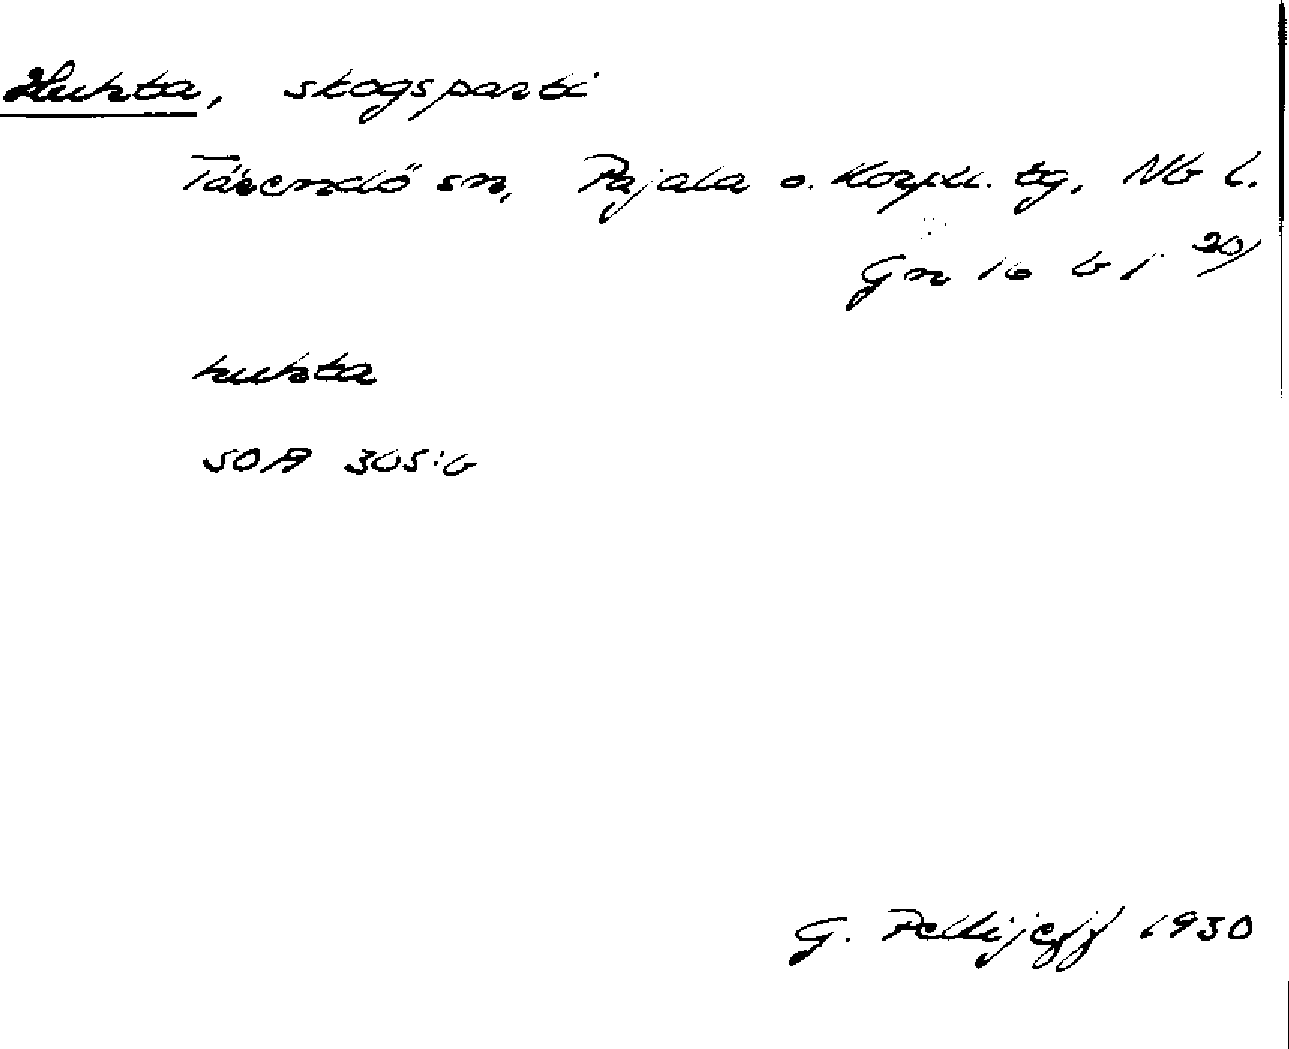 Huhta, skogsparti
Tärendö sn, Pajala o. Korpil. tg, Nb l.
Gn 16 b 1 20/
huhta
SOA 305:b
G. Pellijeff 1930